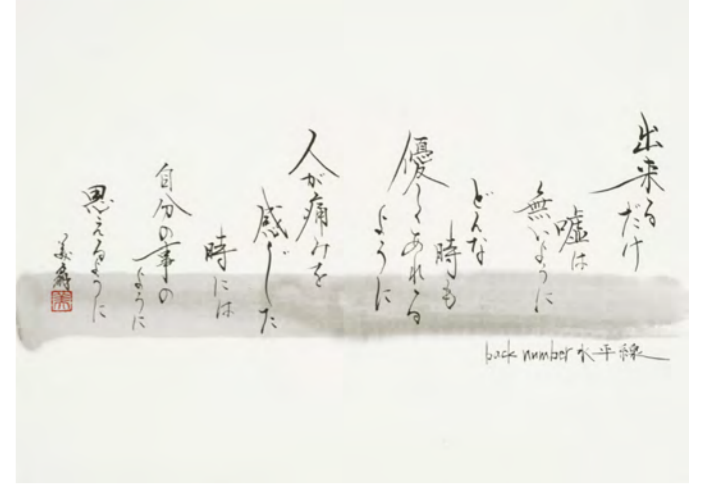 出来るだけ
嘘は
無いように
どんな
時も
優しくあれる
ように
人が痛みを
感じた
時には
自分の事の
ように
思えるように
back number 水平線